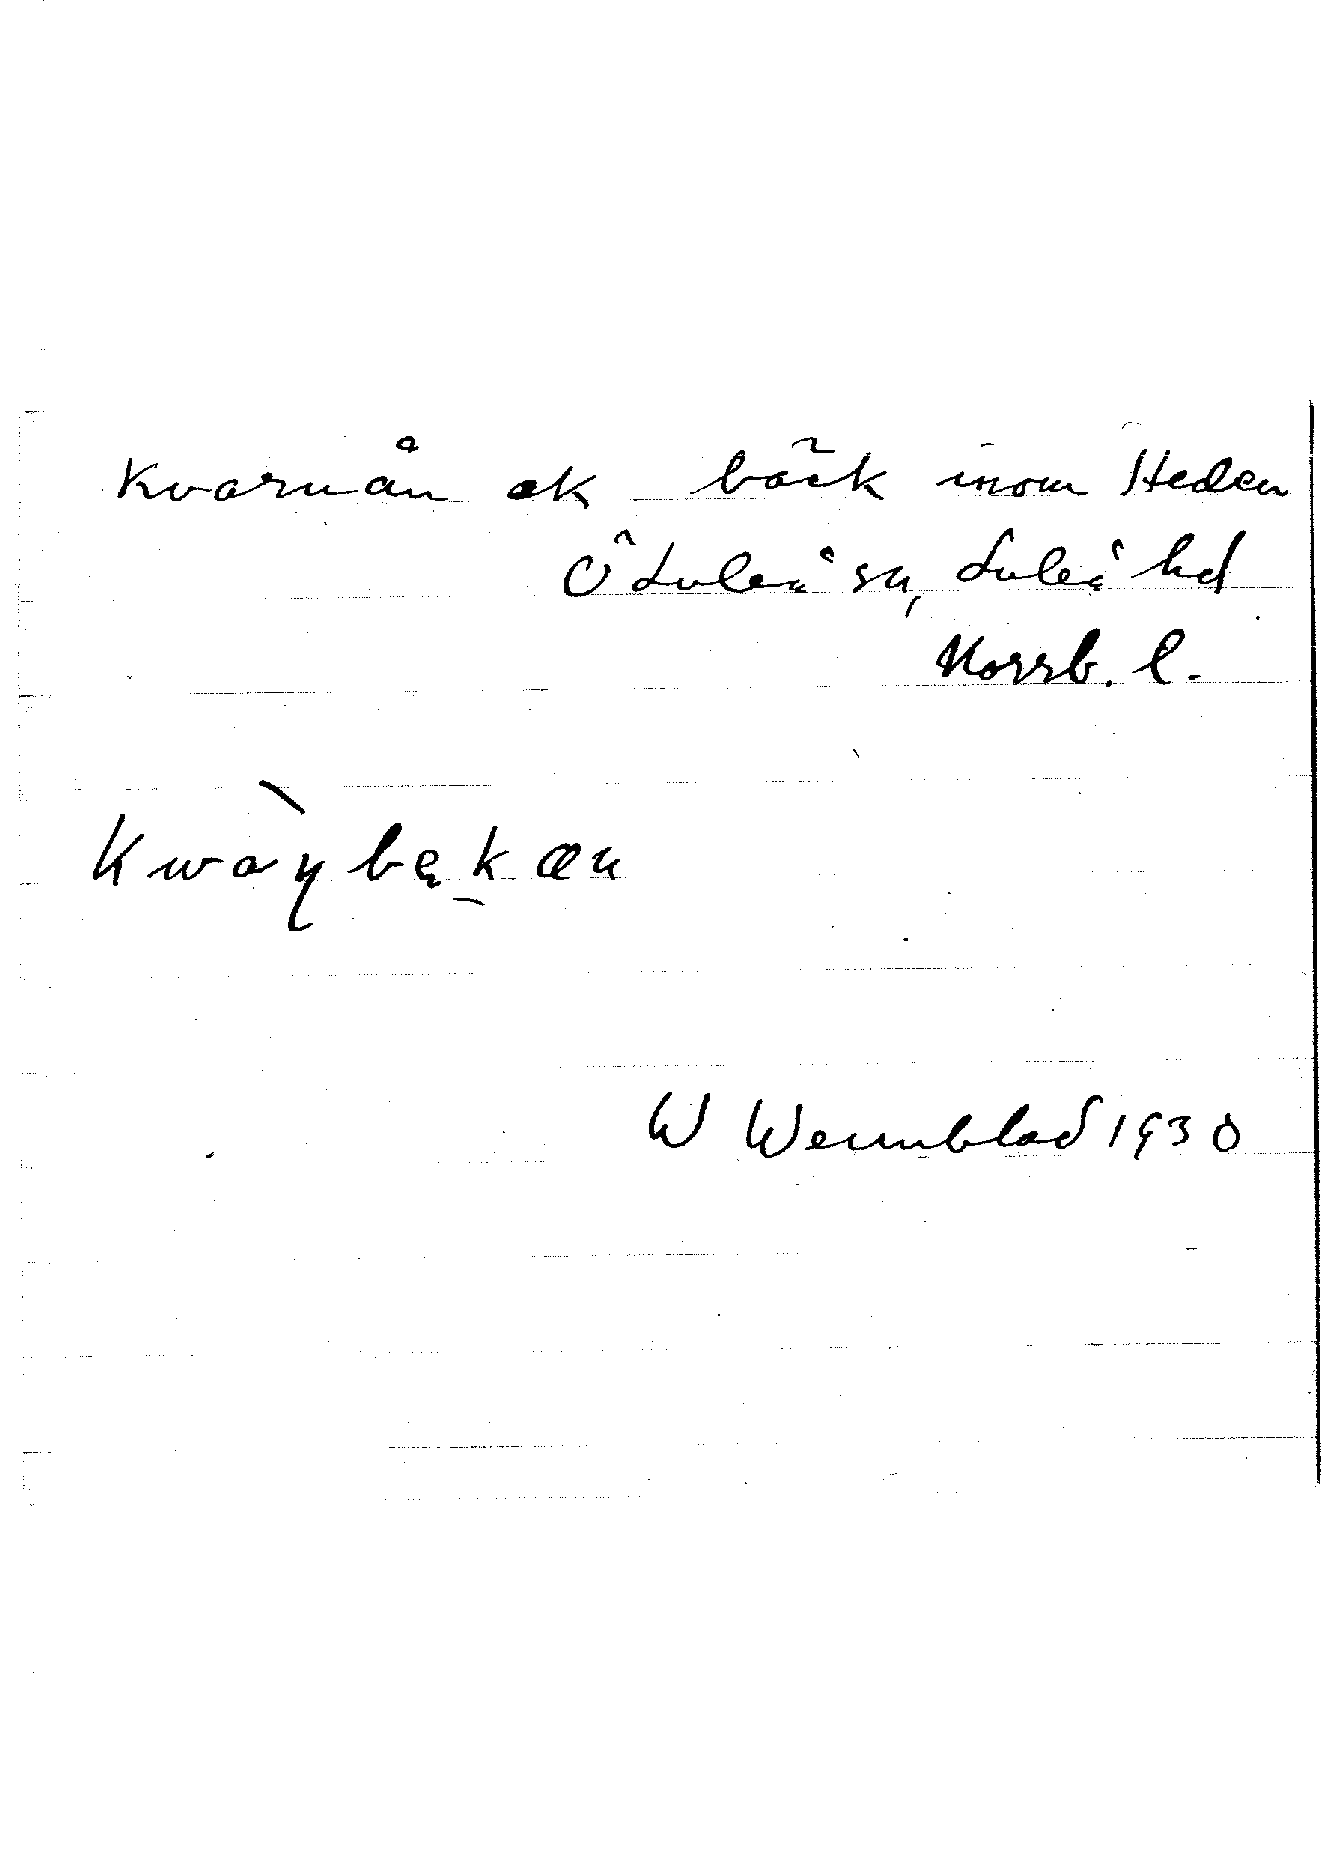 Kvarnån ek bäck inom Heden
Ö Luleå sn, Luleå hd
Norrb. l.
W Wennblad 1930